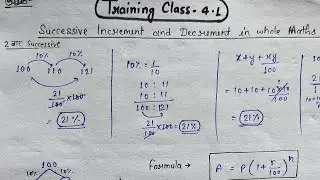 Training Class - 4.1
Successive Increment and Decrement in whole Maths
2 बार Successive
10% 10%
100 110 121
21/100 × 100
= 21%
10% = 1/10
10 : 11
10 : 11
100 : 121
21/100 × 100 = 21%
x + y + xy/100
= 10 + 10 + 10×10/100
= 21%
100
10%
Formula → A = P(1 + r/100)^n